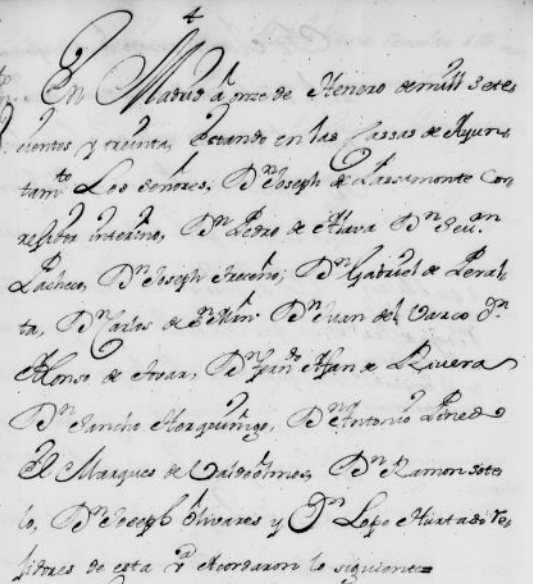 4
En Madrid à onze de Henero de mill Sete
cientos y treinta, Estando en las Cassas de Ayun
tam.to Los señores, D.n Joseph de Passamonte Cor
rexidor interino, D.n Pedro de Alava D.n
Pacheco, D.n Joseph Treceño, D.n Gabriel de Peral
ta, D.n Carlos de D.n Juan del Varco D.n
Alonso de Tovar, D.n fern.do Afan de Rivera
D.n Sancho D.n Antonio Pinedo
El Marques de Valdeolmos, D.n Ramon Sote
lo, D.n Joseph Olivares y D.n Lope Hurtado Re
jidores de esta V.a Acordaron lo siguiente=